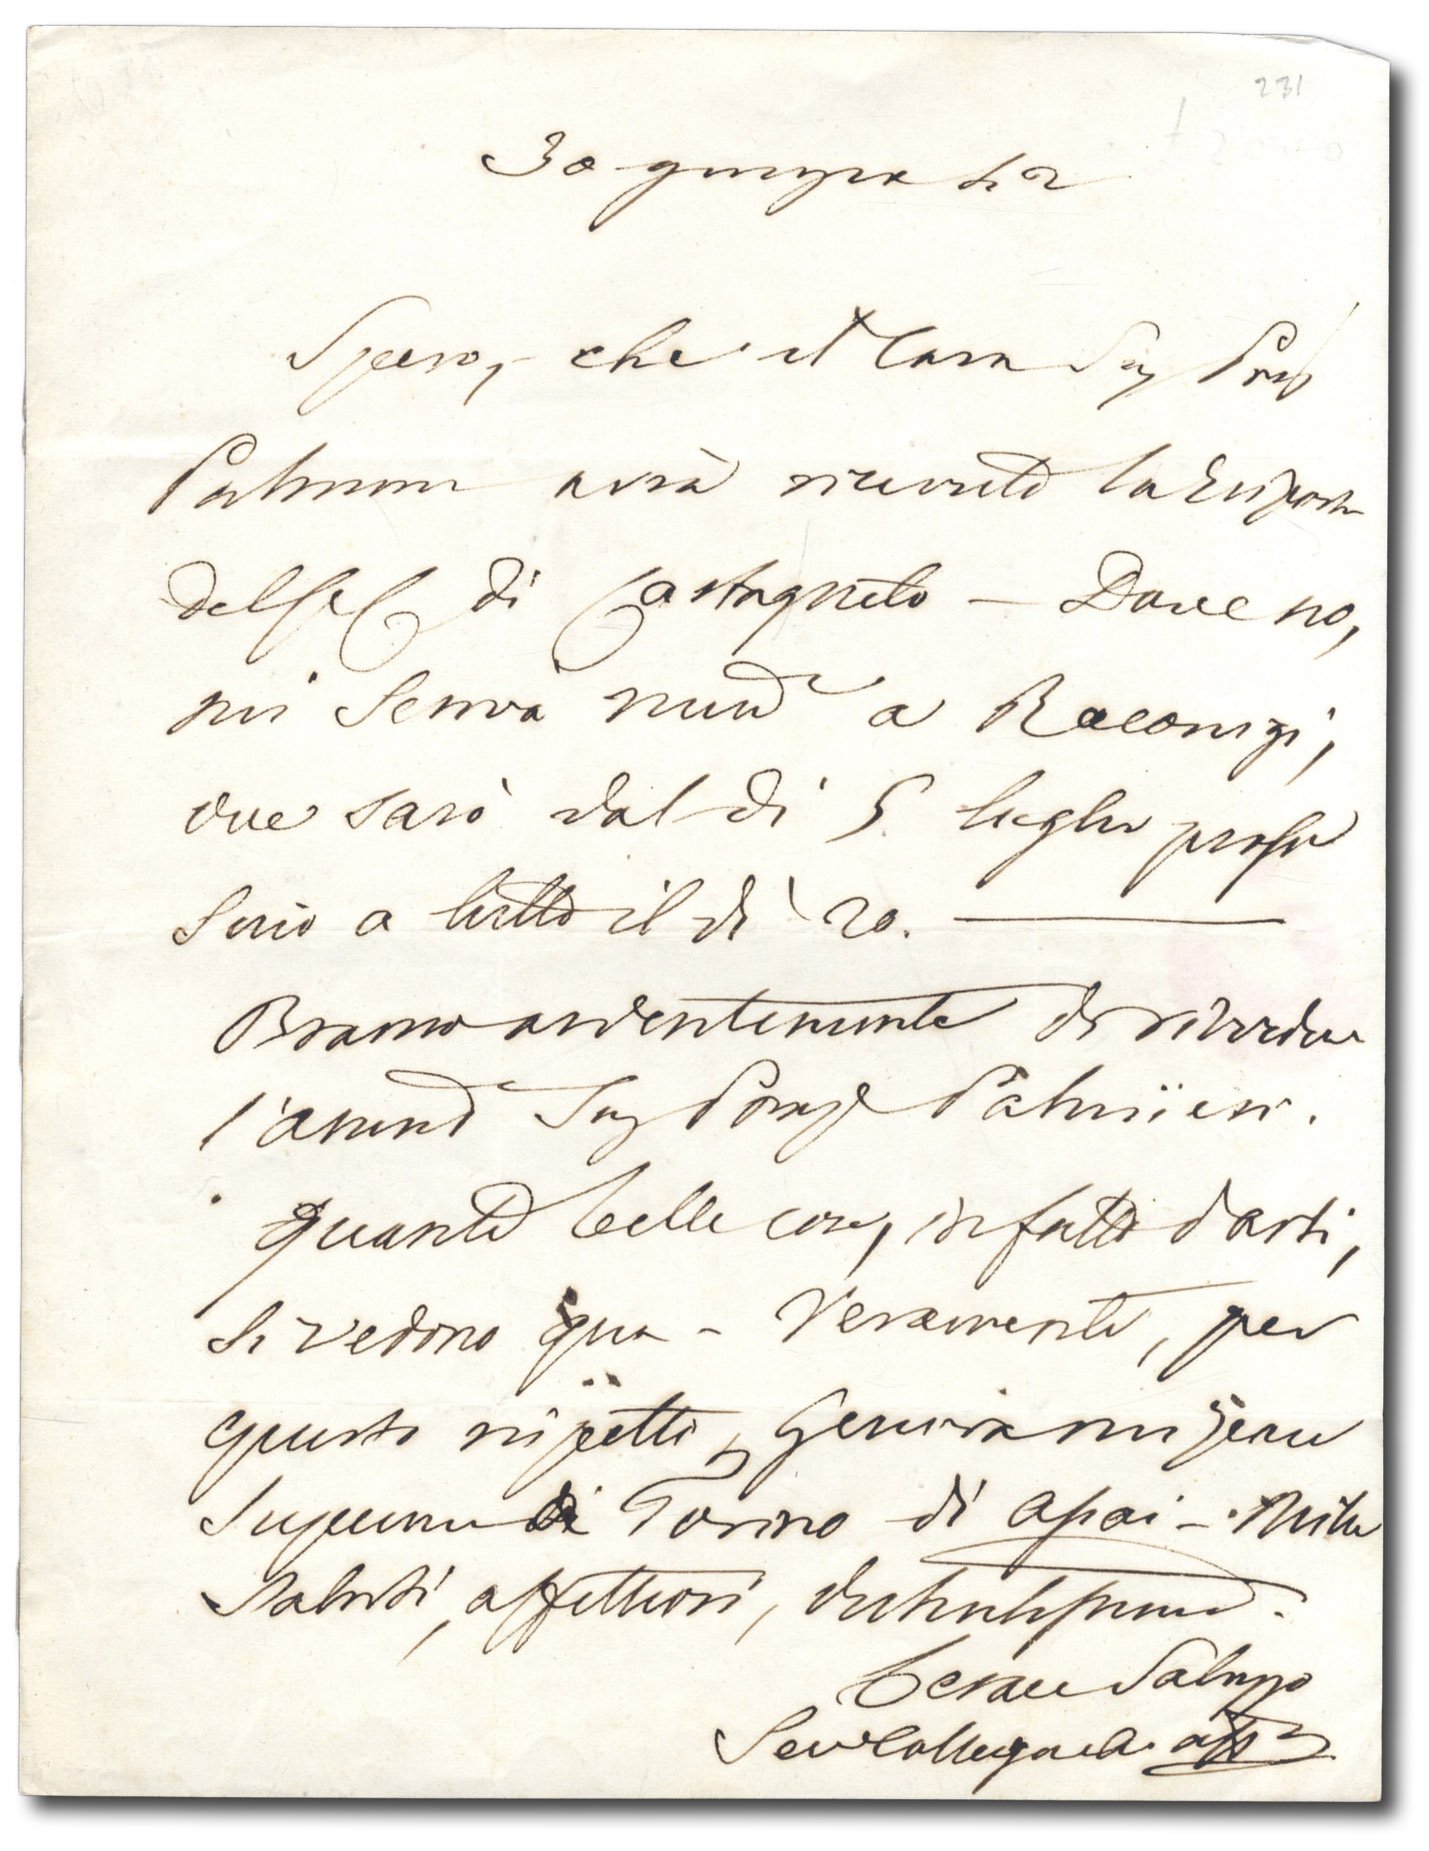 231
30 giugno 42
Spero, che il Caro Sig Prof
Palmieri avrà ricevuto la Risposta
del di Castagneto — Dove no,
mi scriva a Raconigi,
ove sarò dal dì 5 luglio pross
simo a tutto il dì 20. —
Bramo ardentemente di rivedere
l'amat Sig Prof Palmieri.
Quante belle cose, in fatto d'arti,
si vedono qua - Veramente, per
questo rispetto, Genova mi pare
superiore di Torino di assai - Mille
saluti, affettuosi,
Cesare Saluzzo
Suo Collega ed aff